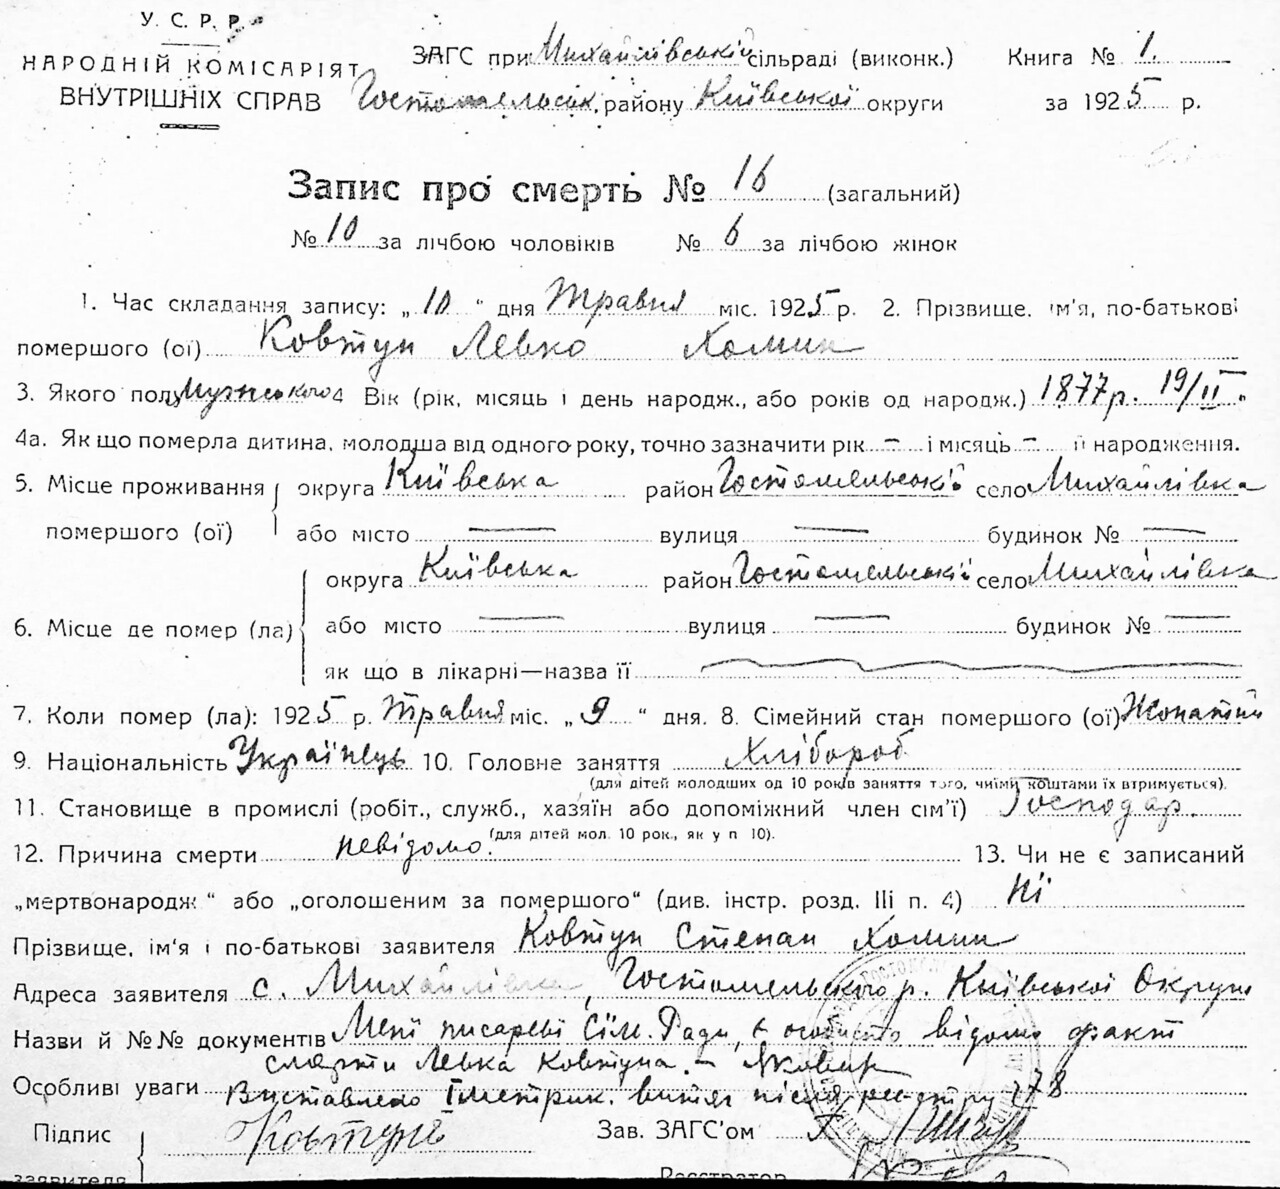 У. С. Р. Р.
НАРОДНІЙ КОМІСАРІЯТ
ВНУТРІШНІХ СПРАВ
ЗАГС при Михайлівській сільраді (виконк.) Книга № 1.
Гостомельськ. району Київської округи за 1925 р.
Запис про смерть № 16 (загальний)
№ 10 за лічбою чоловіків № 6 за лічбою жінок
1. Час складання запису: „ 10 " дня Травня міс. 1925 р. 2. Прізвище, ім'я, по-батькові
помершого (ої) Ковтун Левко Хомин
3. Якого полу Мужського 4 Вік (рік, місяць і день народж., або років од народж.) 1877 р. 19/II.
4а. Як що померла дитина, молодша від одного року, точно зазначити рік – і місяць – її народження.
5. Місце проживання помершого (ої) округа Київська район Гостомельській село Михайлівка
або місто — вулиця — будинок № —
6. Місце де помер (ла) округа Київська район Гостомельській село Михайлівка
або місто — вулиця — будинок № —
як що в лікарні—назва її
7. Коли помер (ла): 1925 р. Травня міс. „ 9 " дня. 8. Сімейний стан помершого (ої) Жонатий
9. Національність Українець 10. Головне заняття Хлібороб
(для дітей молодших од 10 років заняття того, чиїми коштами їх втримується).
11. Становище в промислі (робіт., служб., хазяїн або допоміжний член сім'ї) Господар.
(для дітей мол. 10 рок., як у п 10).
12. Причина смерти невідомо. 13. Чи не є записаний
„мертвонародж " або „оголошеним за помершого" (див. інстр. розд. III п. 4) ні
Прізвище, ім'я і по-батькові заявителя Ковтун Степан Хомин
Адреса заявителя с. Михайлівка, Гостомельського р. Київської Округи
Назви й №№ документів Мені писареві Сіл. Ради, є особисто відомо факт
смерти Левка Ковтуна. –
Особливі уваги Виставлено метрик. витяг після реєстру 278
Підпис Ковтун Зав. ЗАГС'ом
заявителя Реєстратор